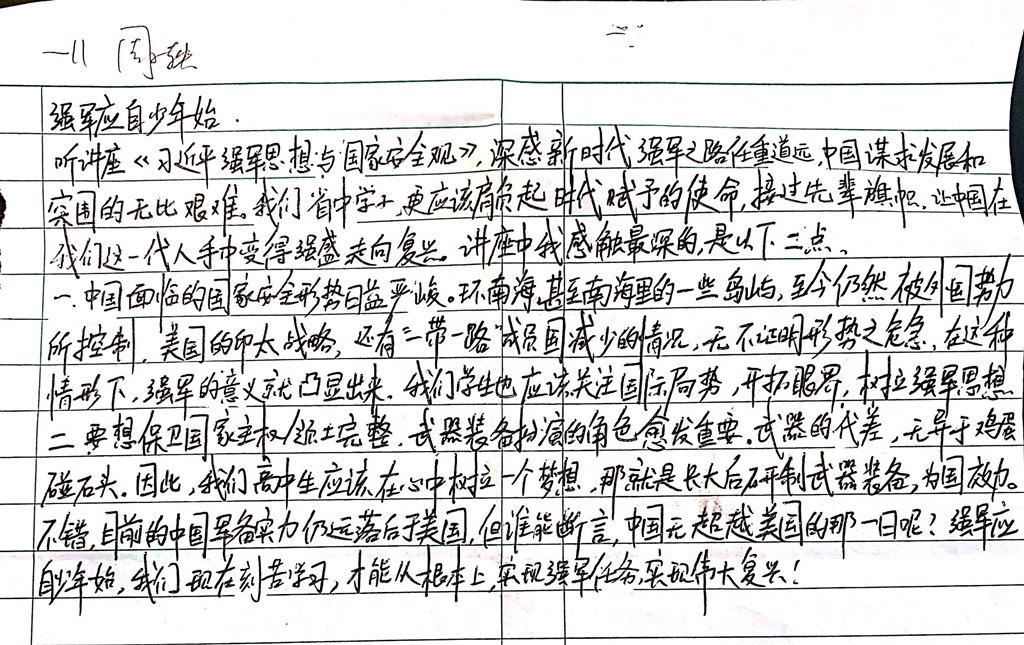 一11 周
强军应自少年始.
听讲座《习近平强军思想与国家安全观》,深感新时代强军之路任重道远,中国谋求发展和
突围的无比艰难。我们省中学子,更应该肩负起时代赋予的使命,接过先辈旗帜,让中国在
我们这一代人手中变得强盛走向复兴。讲座中我感触最深的,是以下二点、
一.中国面临的国家安全形势日益严峻。环南海,甚至南海里的一些岛屿,至今仍然被外国势力
所控制,美国的印太战略,还有"一带一路"成员国减少的情况,无不证明形势之危急,在这种
情形下,强军的意义就凸显出来。我们学生也应该关注国际局势,开拓眼界,树立强军思想
二.要想保卫国家主权领土完整,武器装备扮演的角色愈发重要。武器的代差,无异于鸡蛋
碰石头。因此,我们高中生应该在心中树立一个梦想,那就是长大后研制武器装备,为国效力。
不错,目前的中国军备实力仍远落后于美国,但谁能断言,中国无超越美国的那一日呢?强军应
自少年始,我们现在刻苦学习,才能从根本上,实现强军任务,实现伟大复兴!